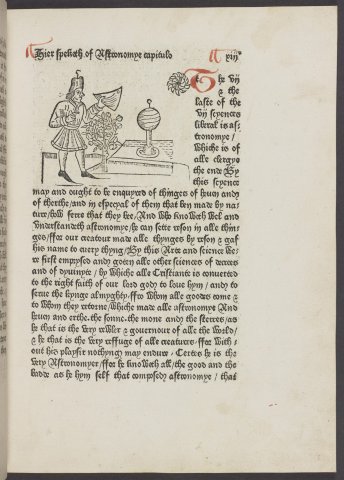 Hier speketh of Astronomye capitulo xiijº
The vij
& the
laste of the
vij scyences
liberal is as-
tronomye /
whiche is of
alle clergye
the ende By
this scyence
may and ought to be enquyred of thinges of heuen and
of therthe / and in especyal of them that ben made by na-
ture / how ferre that they be / And who knoweth wel and
vnderstandeth astronomye / he can sette reson in alle thin-
ges / ffor our creatour made alle thynges by reson & gaf
his name to euery thyng / By this Arte and science we-
re first empysed and goten alle other sciences of decrees
and of dyuinyte / by whiche alle Cristiante is conuerted
to the right faith of our lord god to loue hym / and to
serue the kynge almyghty / ffro whom alle goodes come &
to whom they retorne / whiche made alle astronomye And
heuen and erthe the sonne the mone and the sterres / as
he that is the very rewler & gouernour of alle the world /
& he that is the very reffuge of alle creatures / ffor with-
out his playsir nothyng may endure . Certes he is the
very Astronomyer / ffor he knoweth all / the good and the
badde as he hym self that composed astronomye / that